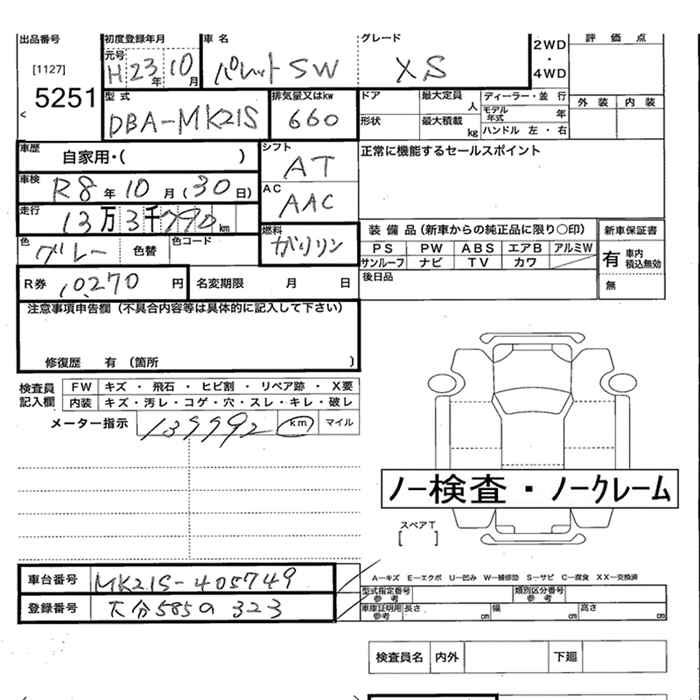 出品番号 初度登録年月 車名 グレード 2WD・4WD 評価点
[1127] 元号 H23年10月 パレットSW XS
5251 型式 排気量又はkw ドア 最大定員 人 ディーラー・並行 外装 内装
DBA-MK21S 660 形状 最大積載 kg モデル年式 年 ハンドル 左・右
車歴 自家用・( ) シフト AT 正常に機能するセールスポイント
車検 R8年10月(30日) AC AAC
走行 13万3千790km 燃料 ガソリン 装備品(新車からの純正品に限り○印) 新車保証書
色 グレー 色替 色コード PS PW ABS エアB アルミW 有 車内積込無効
サンルーフ ナビ TV カワ
R券 10,270円 名変期限 月 日 後日品 無
注意事項申告欄(不具合内容等は具体的に記入して下さい)
修復歴 有(箇所 )
検査員記入欄 FW キズ・飛石・ヒビ割・リペア跡・X要
内装 キズ・汚レ・コゲ・穴・スレ・キレ・破レ
メーター指示 139992 km マイル
ノー検査・ノークレーム
スペアT
[ ]
A-キズ E-エクボ U-凹み W-補修跡 S-サビ C-腐食 XX-交換済
車台番号 MK21S-405749 型式指定番号参考 類別区分番号参考
登録番号 大分585の323 車庫証明用参考 長さ cm 幅 cm 高さ cm
検査員名 内外 下廻